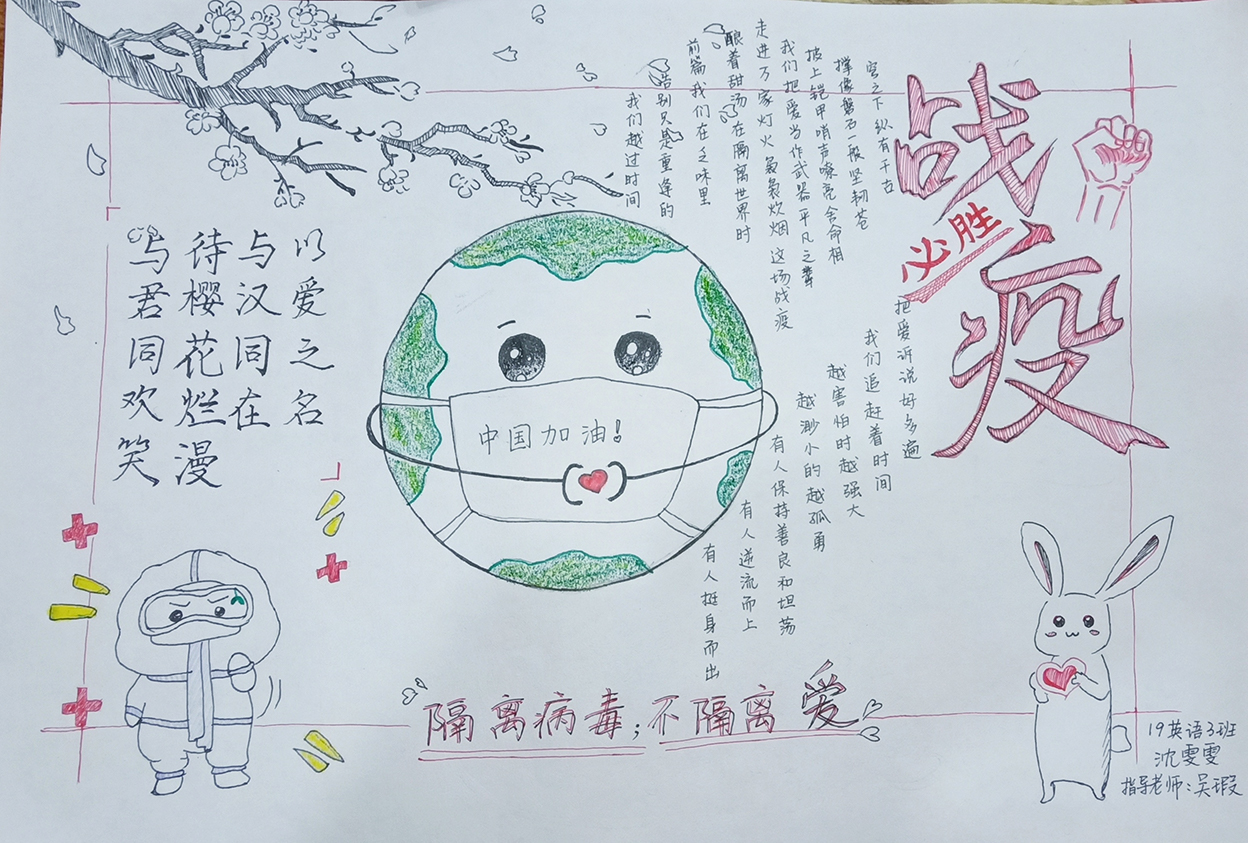 战疫
必胜
穹之下 纵有千
撑像磐石一般坚韧 苍
披上铠甲 哨声嘹亮 舍命相
我们把爱当作武器 平凡之辈
走进万家灯火 袅袅炊烟 这场战疫
酿着甜汤 在隔离世界时
前篇 我们在乏味里
告别只是重逢的
我们越过时间
把爱诉说好多遍
我们追赶着时间
越害怕时越强大
越渺小的越孤勇
有人保持善良和坦荡
有人逆流而上
有人挺身而出
以爱之名
与汉同在
待樱花烂漫
与君同欢笑
中国加油!
隔离病毒;不隔离爱
19英语3班
沈雯雯
指导老师:吴瑕